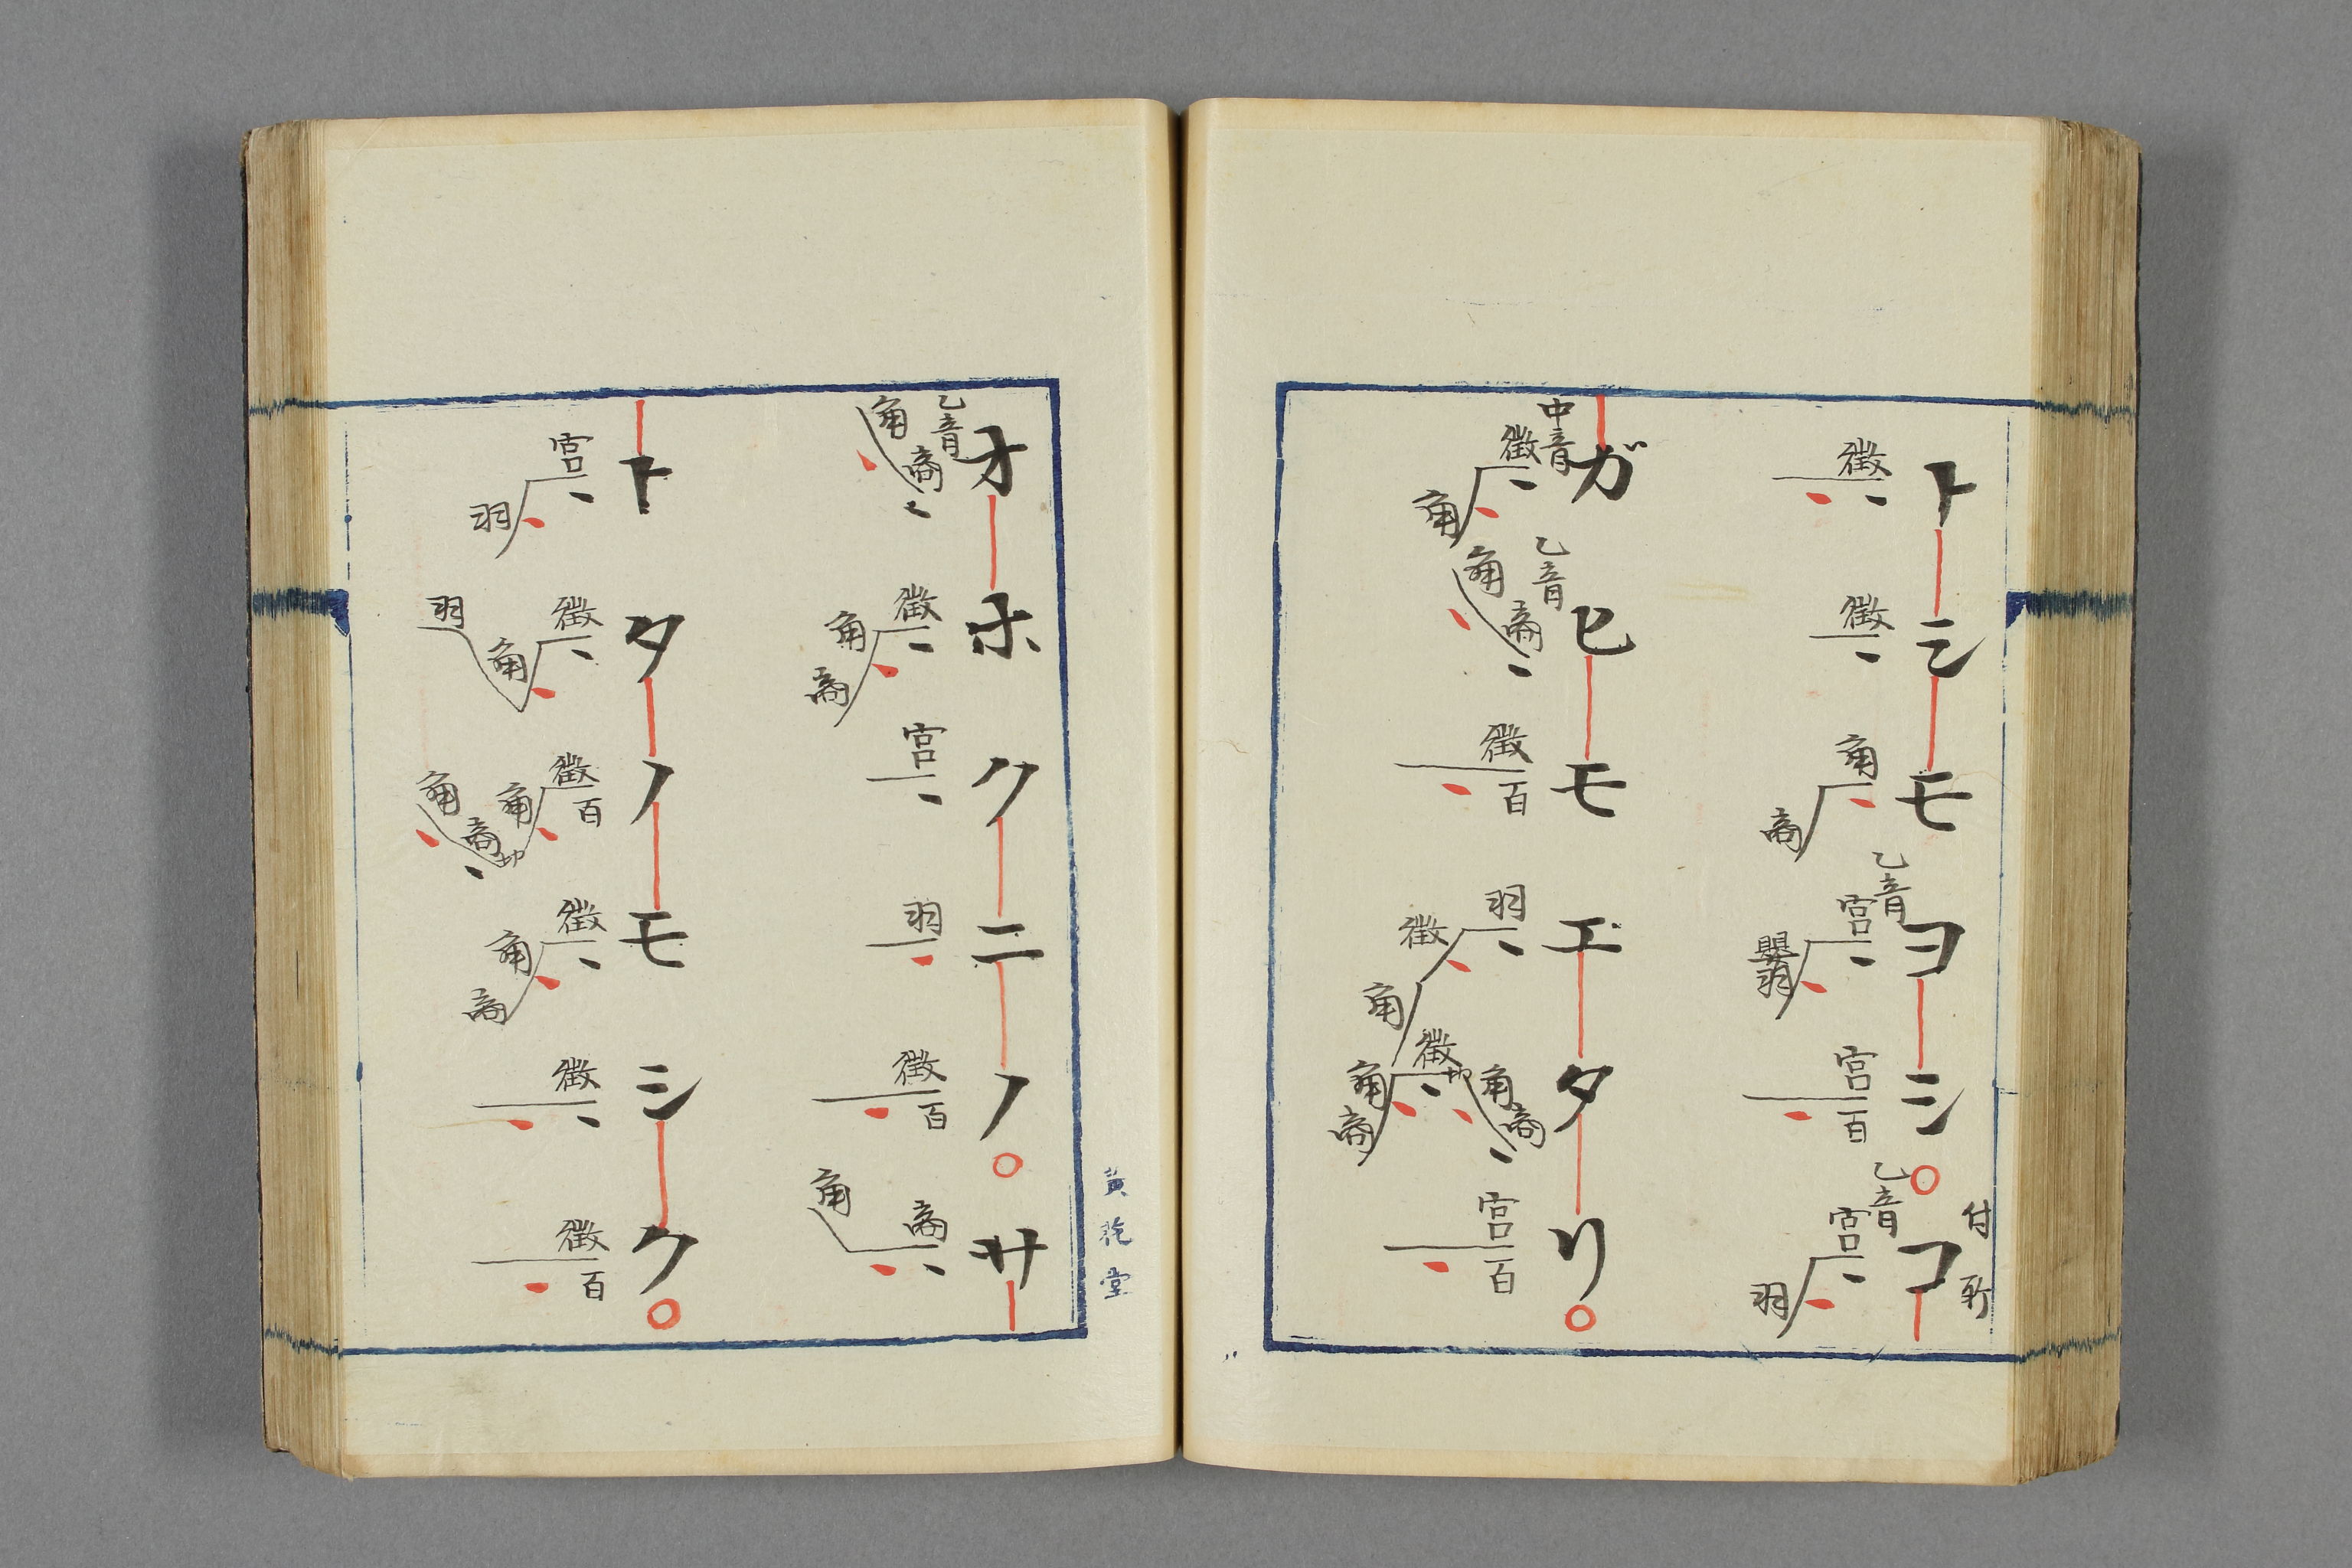 トシモヨシコ
徴
徴
角
商
乙音
宮
宮
百
乙音
宮
羽
付
所
ガヒモエタリ
中音
徴
角
乙音
角
商
徴
百
羽
徴
角
徴
角
商
角
商
宮
百
オホクニノサ
乙音
角
商
徴
角
商
宮
羽
徴
百
商
角
トタノモシク
宮
羽
徴
角
羽
徴
百
角
商
角
徴
角
商
徴
徴
百